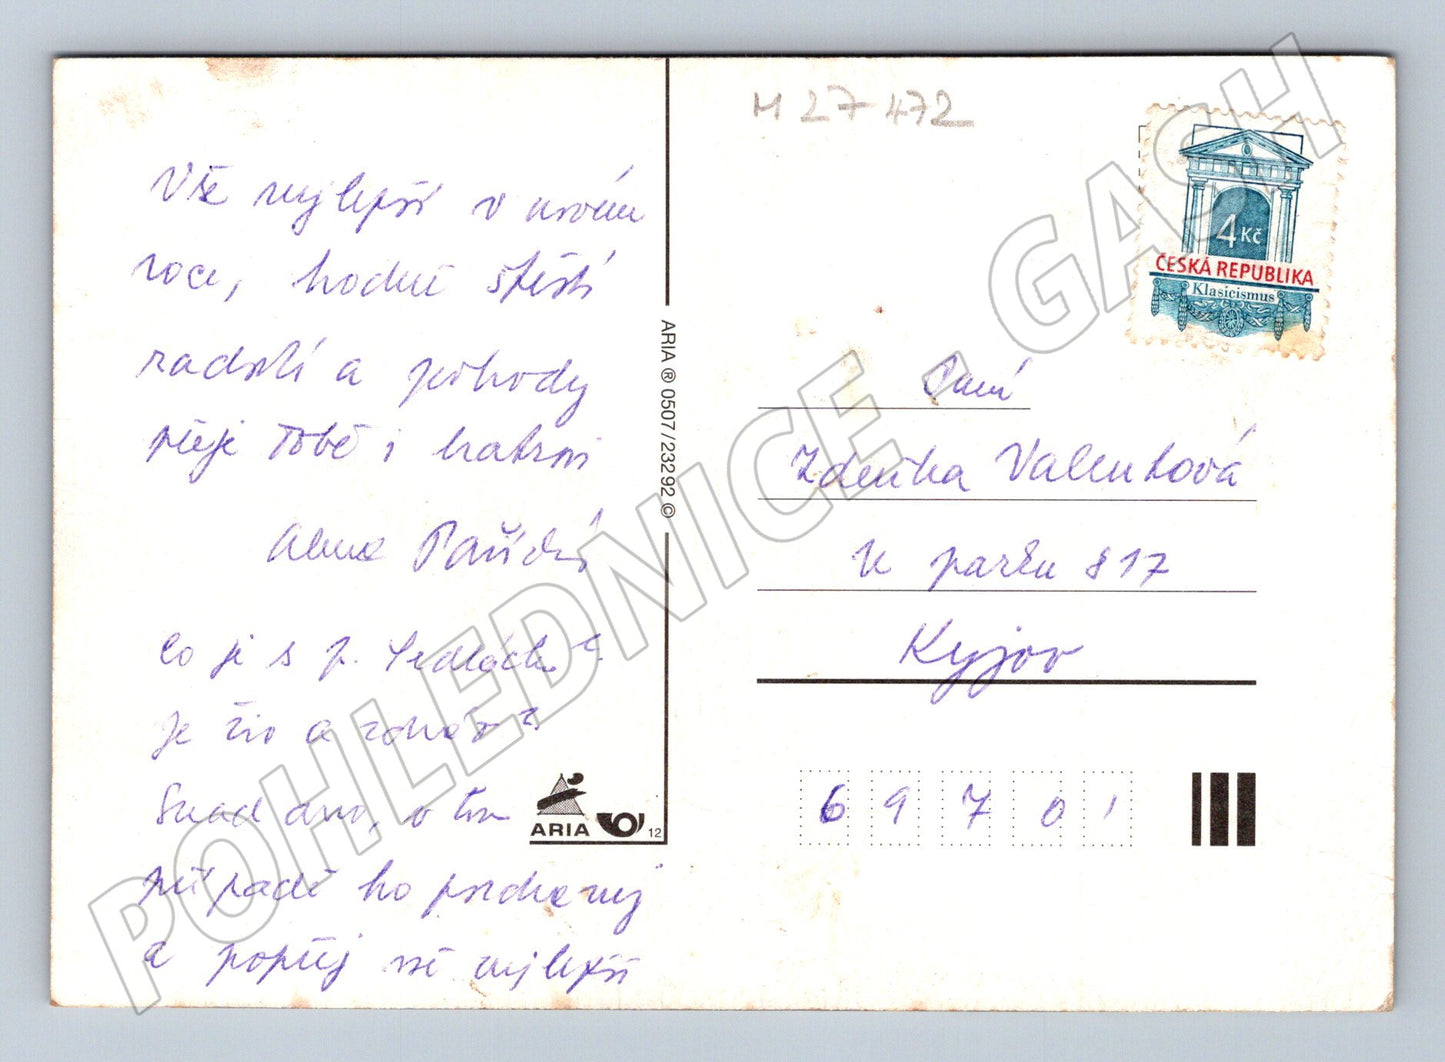 Vše nejlepší v novém
roce, hodně štěstí
radosti a pohody
přeje Tobě i bratrovi
Alena
Co je s p.
Je živ a zdráv?
Snad ano, v tom
případě ho pozdravuj
a popřej vše nejlepší
ARIA ® 0507/23292 ©
ARIA
12
M 27 472
4 Kč
ČESKÁ REPUBLIKA
Klasicismus
Paní
Zdeňka Valentová
U parku 817
Kyjov
69701
POHLEDNICE - GASH